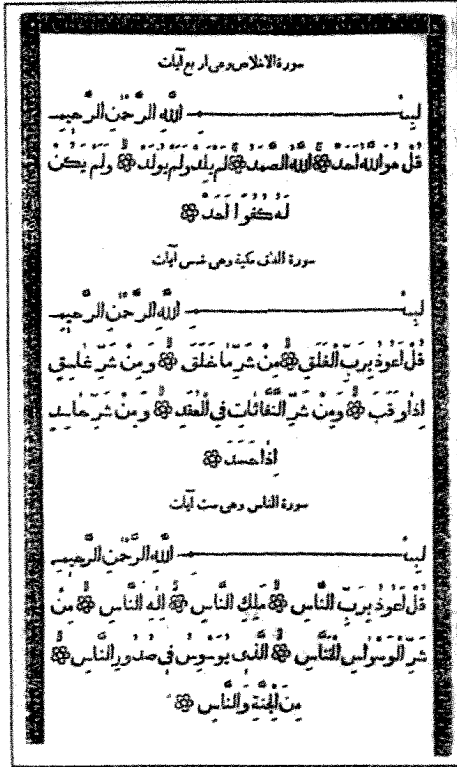 سورة الاخلاص وهى اربع آيات
بِسْمِ اللَّهِ الرَّحْمٰنِ الرَّحِيمِ
قُلْ هُوَ اللَّهُ اَحَدٌ ۞ اَللَّهُ الصَّمَدُ ۞ لَمْ يَلِدْ وَلَمْ يُولَدْ ۞ وَلَمْ يَكُنْ
لَهُ كُفُوًا اَحَدٌ ۞
سورة الفلق مكية وهى خمس آيات
بِسْمِ اللَّهِ الرَّحْمٰنِ الرَّحِيمِ
قُلْ اَعُوذُ بِرَبِّ الْفَلَقِ ۞ مِنْ شَرِّ مَا خَلَقَ ۞ وَمِنْ شَرِّ غَاسِقٍ
اِذَا وَقَبَ ۞ وَمِنْ شَرِّ النَّفَّاثَاتِ فِى الْعُقَدِ ۞ وَمِنْ شَرِّ حَاسِدٍ
اِذَا حَسَدَ ۞
سورة الناس وهى ست آيات
بِسْمِ اللَّهِ الرَّحْمٰنِ الرَّحِيمِ
قُلْ اَعُوذُ بِرَبِّ النَّاسِ ۞ مَلِكِ النَّاسِ ۞ اِلٰهِ النَّاسِ ۞ مِنْ
شَرِّ الْوَسْوَاسِ الْخَنَّاسِ ۞ اَلَّذِى يُوَسْوِسُ فِى صُدُورِ النَّاسِ ۞
مِنَ الْجِنَّةِ وَالنَّاسِ ۞